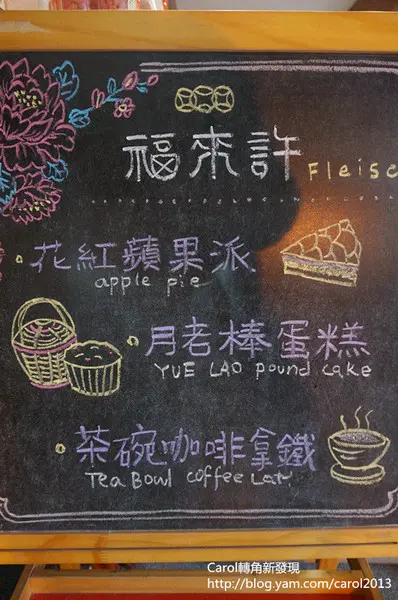 福來許 Fleisc
花紅蘋果派
apple pie
月老棒蛋糕
YUE LAO pound cake
茶碗咖啡拿鐵
Tea Bowl coffee Laty
Carol轉角新發現
http://blog.yam.com/carol2013